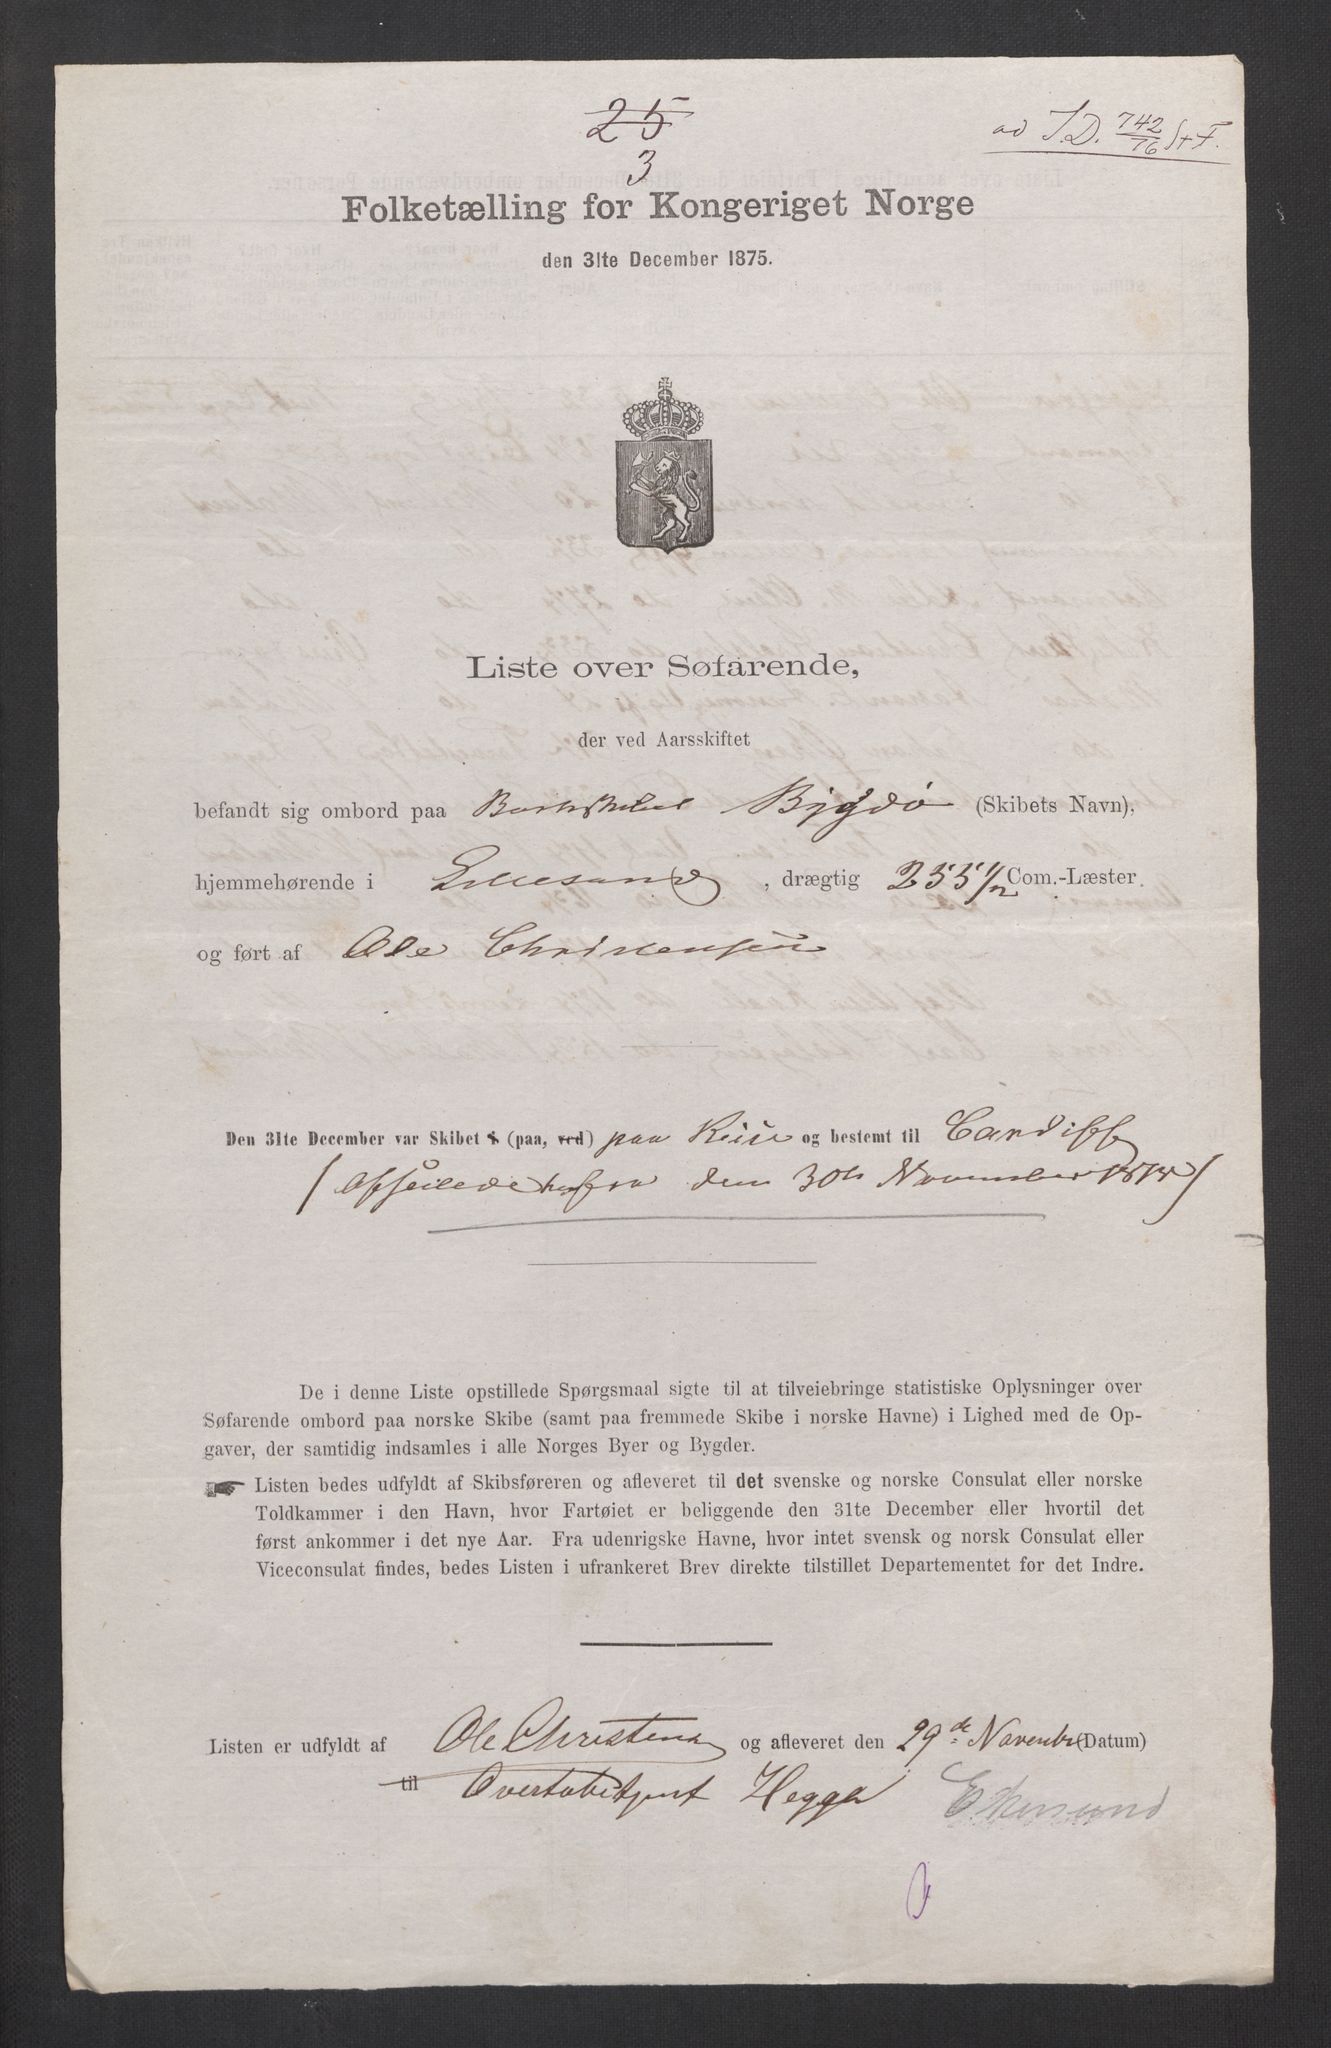 25
3
ad J.D. 742/76 St F.
Folketælling for Kongeriget Norge
den 31te December 1875.
Liste over Søfarende,
der ved Aarsskiftet
befandt sig ombord paa Barkskibet Bygdø (Skibets Navn),
hjemmehørende i Lillesand, drægtig 255 1/2 Com.-Læster
og ført af Ole Christensen
Den 31te December var Skibet i (paa, ved) paa Reise og bestemt til Cardiff
(Afseilede herfra den 30te November 1875)
De i denne Liste opstillede Spørgsmaal sigte til at tilveiebringe statistiske Oplysninger over
Søfarende ombord paa norske Skibe (samt paa fremmede Skibe i norske Havne) i Lighed med de Op-
gaver, der samtidig indsamles i alle Norges Byer og Bygder.
Listen bedes udfyldt af Skibsføreren og afleveret til det svenske og norske Consulat eller norske
Toldkammer i den Havn, hvor Fartøiet er beliggende den 31te December eller hvortil det
først ankommer i det nye Aar. Fra udenrigske Havne, hvor intet svensk og norsk Consulat eller
Viceconsulat findes, bedes Listen i ufrankeret Brev direkte tilstillet Departementet for det Indre.
Listen er udfyldt af Ole Christensen og afleveret den 29de Novembr (Datum)
til Overtoldbetjent Hegge Ekersund